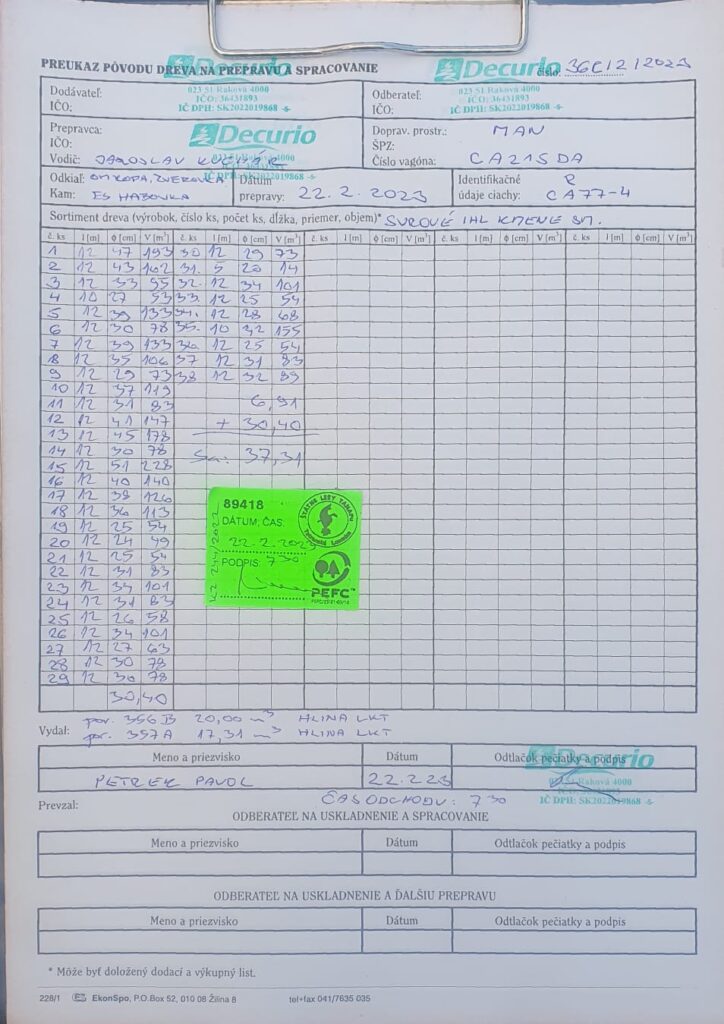 PREUKAZ PÔVODU DREVA NA PREPRAVU A SPRACOVANIE
Decurio
Decurio
číslo 36C/2/2023
Dodávateľ:
023 51 Raková 4000
IČO: 36431893
IČ DPH: SK2022019868 -8-
IČO:
Odberateľ:
023 51 Raková 4000
IČO: 36431893
IČ DPH: SK2022019868 -8-
IČO:
Prepravca:
Decurio
IČO:
Vodič: JAROSLAV
Doprav. prostr.: MAN
ŠPZ:
Číslo vagóna: CA215DA
Odkiaľ: ZVEROVKA
Kam: ES HABOVKA
Dátum
prepravy: 22.2.2023
Identifikačné R
údaje ciachy: CA77-4
Sortiment dreva (výrobok, číslo ks, počet ks, dĺžka, priemer, objem)* SUROVÉ IHL KMENE SM.
č. ks l [m] ϕ [cm] V [m³] č. ks l [m] ϕ [cm] V [m³] č. ks l [m] ϕ [cm] V [m³] č. ks l [m] ϕ [cm] V [m³] č. ks l [m] ϕ [cm] V [m³]
1 12 47 193 30 12 29 73
2 12 43 162 31. 5 20 14
3 12 33 95 32. 12 34 101
4 10 27 53 33. 12 25 54
5 12 39 133 34. 12 28 68
6 12 30 78 35. 10 155
7 12 39 133 36 12 25 54
8 12 35 106 37 12 31 83
9 12 29 73 38 12 32 89
10 12 37 119
11 12 31 83 6,91
12 12 41 147 + 30,40
13 12 45 178
14 12 30 78 Sa: 37,31
15 12 51 228
16 12 40 140
17 12 38 126
18 12 36 113
19 12 25 54
20 12 24 49
21 12 25 54
22 12 31 83
23 12 34 101
24 12 31 83
25 12 26 58
26 12 34 101
27 12 27 63
28 12 30 78
29 12 30 78
30,40
89418
DÁTUM, ČAS:
22.2.2023
PODPIS: 7 30
KZ 244/2022
ŠTÁTNE LESY TANAPU
Tatranská Lomnica
PEFC™
por. 356 B 20,00 m³ HLINA LKT
Vydal: por. 357A 17,31 m³ HLINA LKT
Meno a priezvisko Dátum Odtlačok pečiatky a podpis
Decurio
023 51 Raková 4000
IČ DPH: SK2022019868 -8-
PETREK PAVOL 22.2.23
Prevzal: ČAS ODCHODU: 7 30
ODBERATEĽ NA USKLADNENIE A SPRACOVANIE
Meno a priezvisko Dátum Odtlačok pečiatky a podpis
ODBERATEĽ NA USKLADNENIE A ĎALŠIU PREPRAVU
Meno a priezvisko Dátum Odtlačok pečiatky a podpis
* Môže byť doložený dodací a výkupný list.
228/1 EkonSpo, P.O.Box 52, 010 08 Žilina 8 tel+fax 041/7635 035